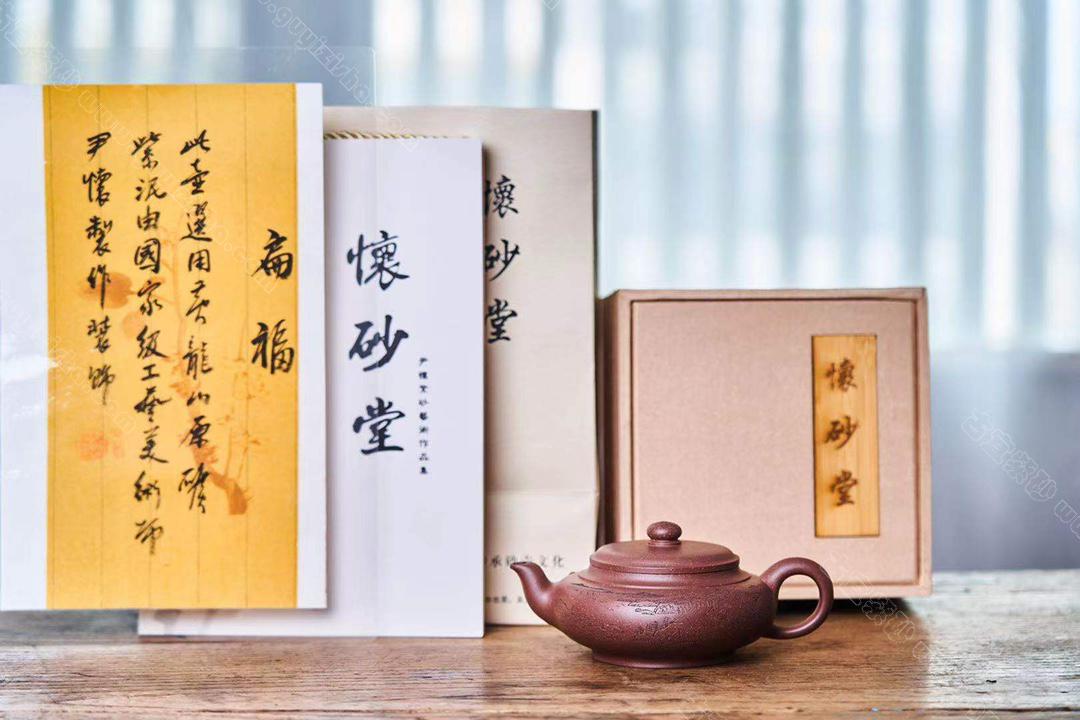 扁福
此壶選用黄龍山原礦
紫泥由國家级工藝美術師
尹懷製作装飾
懷砂堂
尹懷紫砂藝術作品集
懷砂堂
文化
懷砂堂